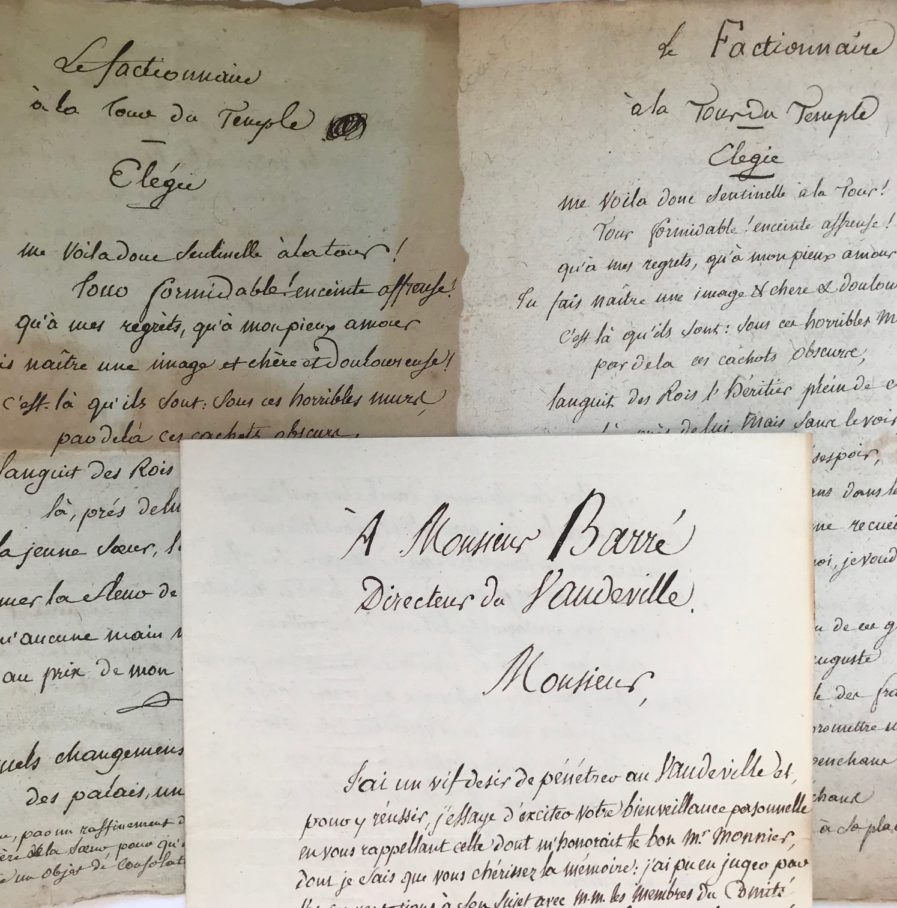 Le factionnaire
à la Tour du Temple
Elégie
me voila donc Sentinelle à la tour!
Tour formidable! enceinte affreuse!
qu'à mes regrets, qu'à mon pieux amour
is naître une image et chère et douloureuse!
c'est-là qu'ils sont: Sous ces horribles murs,
par delà ces cachots obscurs,
languit des Rois
là, près de lui
la jeune Sœur,
au prix de mon
changemens
des palais, un
par un raffinement
Le Factionnaire
à la Tour du Temple
Elegie
me voila donc Sentinelle à la Tour!
Tour formidable! enceinte affreuse!
qu'à mes regrets, qu'à mon pieux amour
Tu fais naître une image & chere & doulou
c'est là qu'ils sont: Sous ces horribles m
par dela ces cachots obscurs,
languit des Rois l'héritier plein de c
là, près de lui, mais sans le voir
sespoir,
dans le
ne recue
oi, je voud
de ces g
auguste
des fra
promettre
à sa pla
À Monsieur Barré
Directeur du Vaudeville.
Monsieur,
J'ai un vif desir de pénétrer au Vaudeville et,
pour y réussir, j'essaye d'exciter votre bienveillance personnelle
en vous rappellant celle dont m'honorait le bon Mr Monnier,
dont je sais que vous chérissez la mémoire: j'ai pu en juger par
à son sujet avec m.m. les membres du Comité